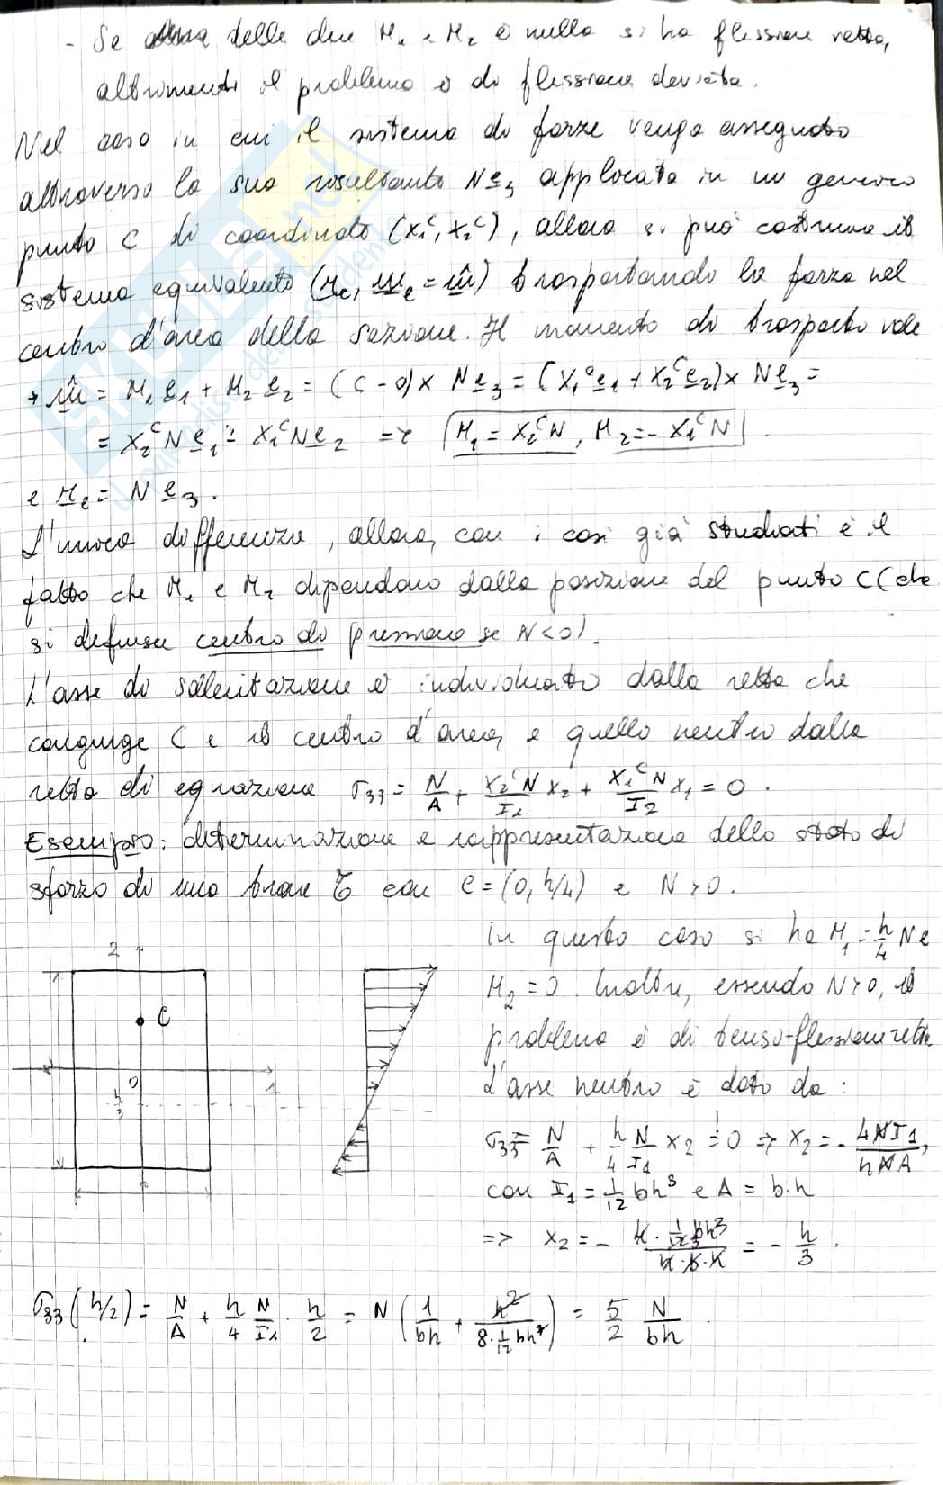 - Se una delle due M₁ e M₂ è nulla si ha flessione retta,
altrimenti il problema è di flessione deviata.
Nel caso in cui il sistema di forze venga assegnato
attraverso la sua risultante N e₃ applicata in un generico
punto C di coordinate (x₁ᶜ, x₂ᶜ), allora si può costruire il
sistema equivalente (r_c, m_c = m̂) trasportando la forza nel
centro d'area della sezione. Il momento di trasporto vale
m̂ = M₁ e₁ + M₂ e₂ = (C - O) × N e₃ = (x₁ᶜ e₁ + x₂ᶜ e₂) × N e₃ =
= x₂ᶜ N e₁ - x₁ᶜ N e₂ => M₁ = x₂ᶜ N, M₂ = - x₁ᶜ N
e r_c = N e₃.
L'unica differenza, allora, con i casi già studiati è il
fatto che M₁ e M₂ dipendono dalla posizione del punto C (che
si definisce centro di pressione se N<0).
L'asse di sollecitazione è individuato dalla retta che
congiunge C e il centro d'area, e quello neutro dalla
retta di equazione σ₃₃ = N/A + x₂ᶜN/I₁ x₂ + x₁ᶜN/I₂ x₁ = 0.
Esempio: determinazione e rappresentazione dello stato di
sforzo di una trave τ con C = (0, h/4) e N > 0.
In questo caso si ha M₁ = h/4 N e
M₂ = 0. Inoltre, essendo N>0, il
problema è di tenso-flessione retta
L'asse neutro è dato da:
σ₃₃ = N/A + h/4 N/I₁ x₂ = 0 => x₂ = - 4NI₁/hNA,
con I₁ = 1/12 bh³ e A = b·h
=> x₂ = - 4 · 1/12 bh³/h·b·h = - h/3.
2
C
O
1
h/3
σ₃₃(h/2) = N/A + h/4 N/I₁ · h/2 = N (1/bh + h²/8·1/12 bh³) = 5/2 N/bh.